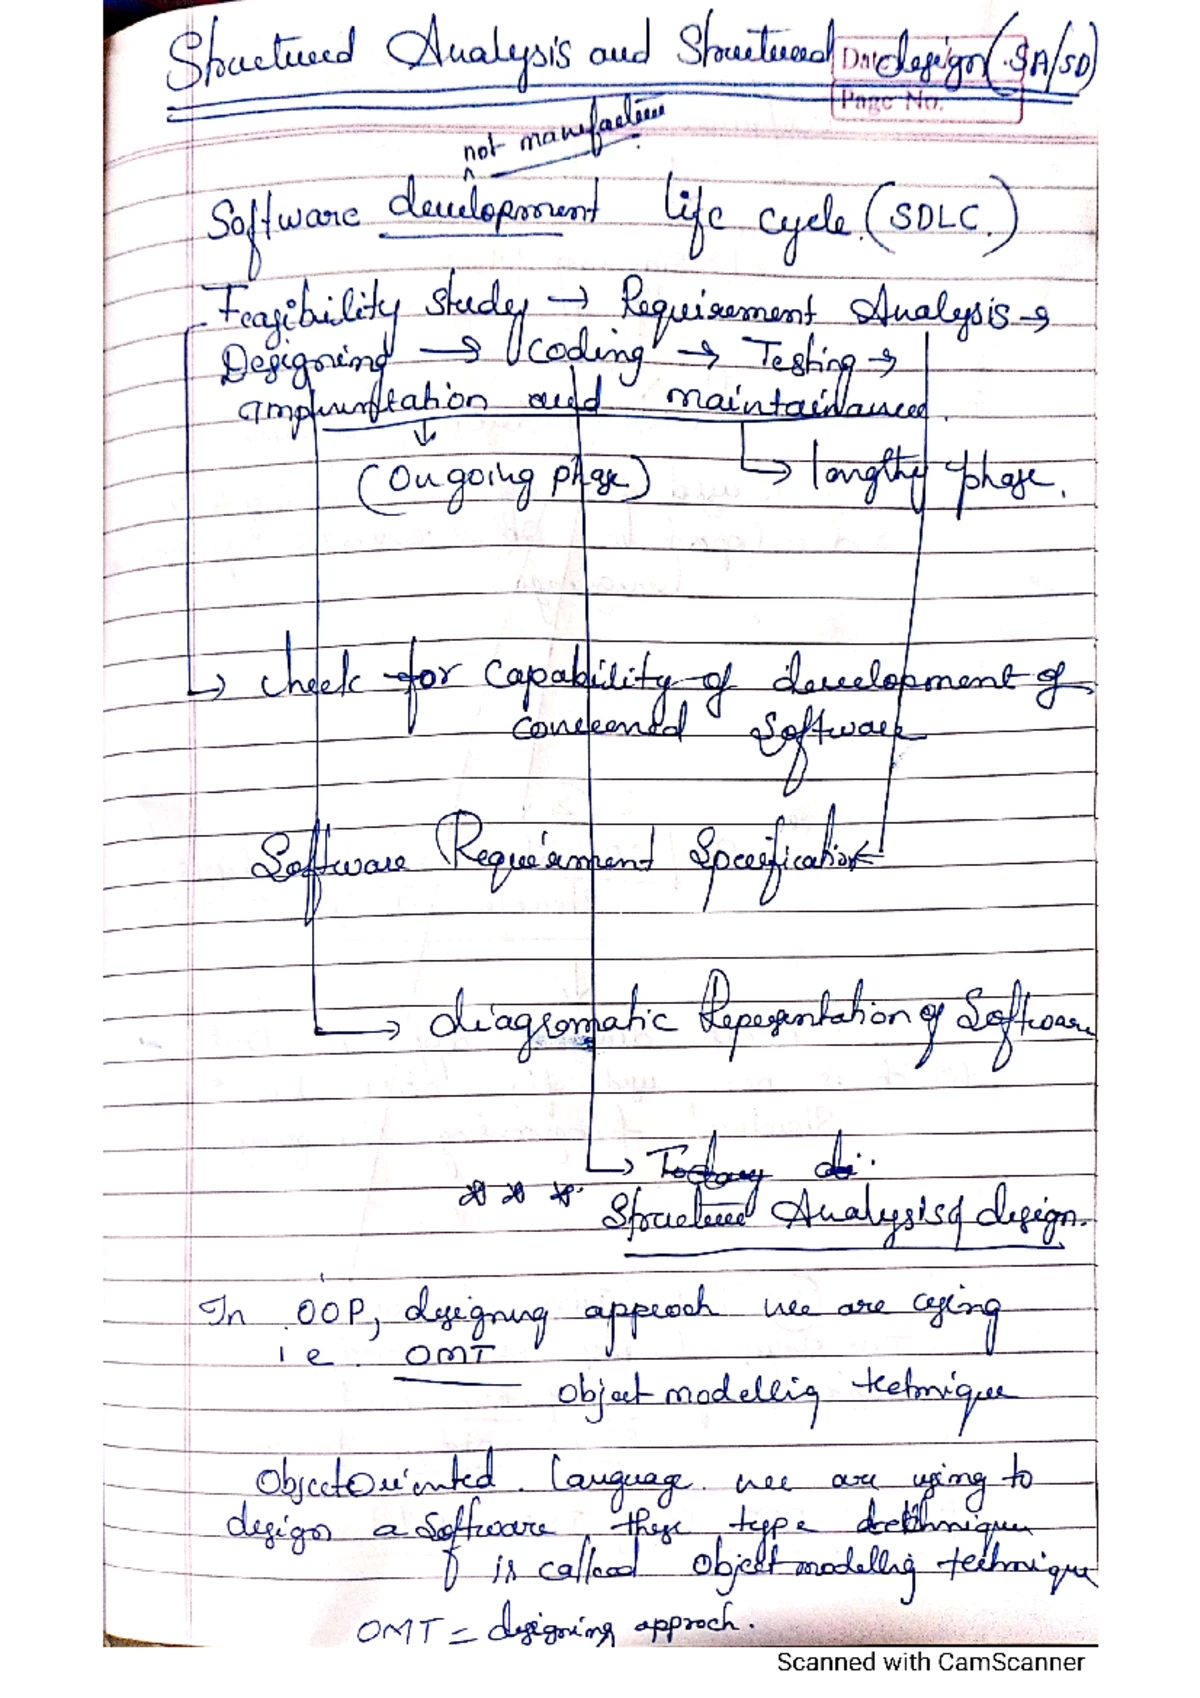 Structured Analysis and Structured design (SA/SD)
Date
Page No.
not manufacture
Software development life cycle. (SDLC.)
Feasibility study → Requirement Analysis →
Designing → coding → Testing →
and maintainance.
(Ongoing phase) → lengthy phase.
→ check for capability of development of
concerned Software
Software Requirement Specification
→ diagramatic Representation of Software
→
Structured Analysis of design.
In OOP, designing approch we are using
i e. OMT
object modellig technique
Object Oriented Language we are using to
design a Software, these type technique
is called object modellig technique
OMT = designing approch.
Scanned with CamScanner